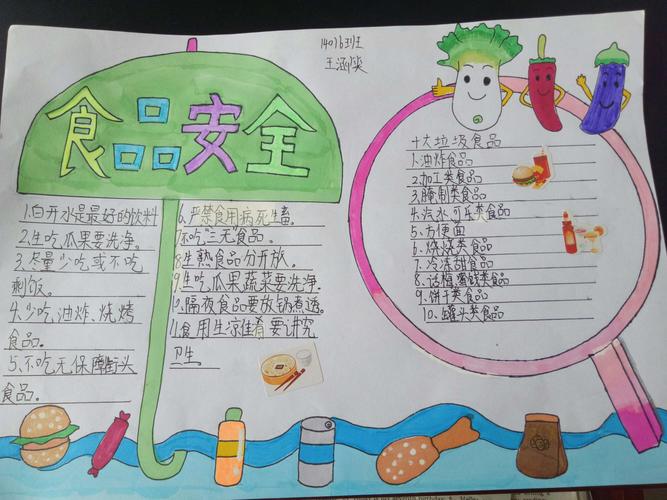 1401班
食品安全
1.白开水是最好的饮料
2.生吃瓜果要洗净。
3.尽量少吃或不吃
剩饭。
4.少吃油炸、烧烤
食品。
5.不吃无保障街头
食品。
6.严禁食用病死畜。
7.不吃“三无”食品。
8.生熟食品分开放。
9.生吃瓜果蔬菜要洗净。
10.隔夜食品要放锅煮透。
11.食用生凉佳肴要讲究
卫生。
十大垃圾食品
1.油炸食品
2.加工类食品
3.腌制类食品
4.汽水可乐类食品
5.方便面
6.烧烤类食品
7.冷冻甜食品
8.话梅蜜饯类食品
9.饼干类食品
10.罐头类食品